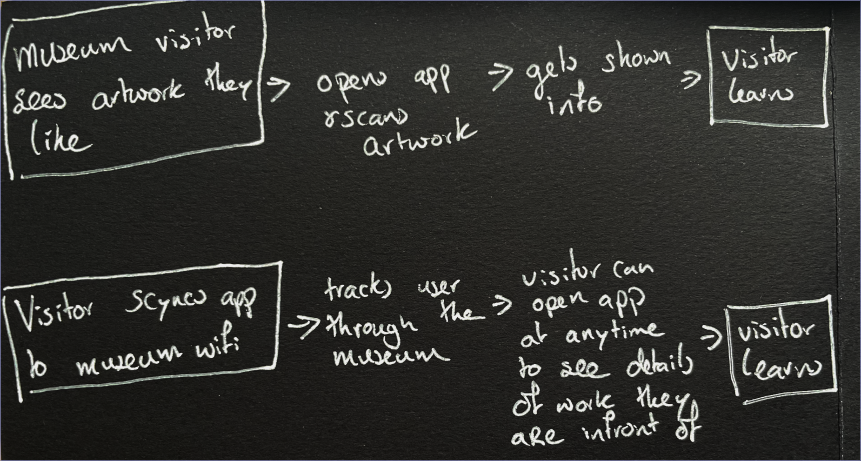 museum visitor
sees artwork they
like
opens app
&scans
artwork
gets shown
info
Visitor
learns
Visitor scyncs app
to museum wifi
tracks user
through the
museum
visitor can
open app
at anytime
to see details
of work they
are infront of
visitor
learns